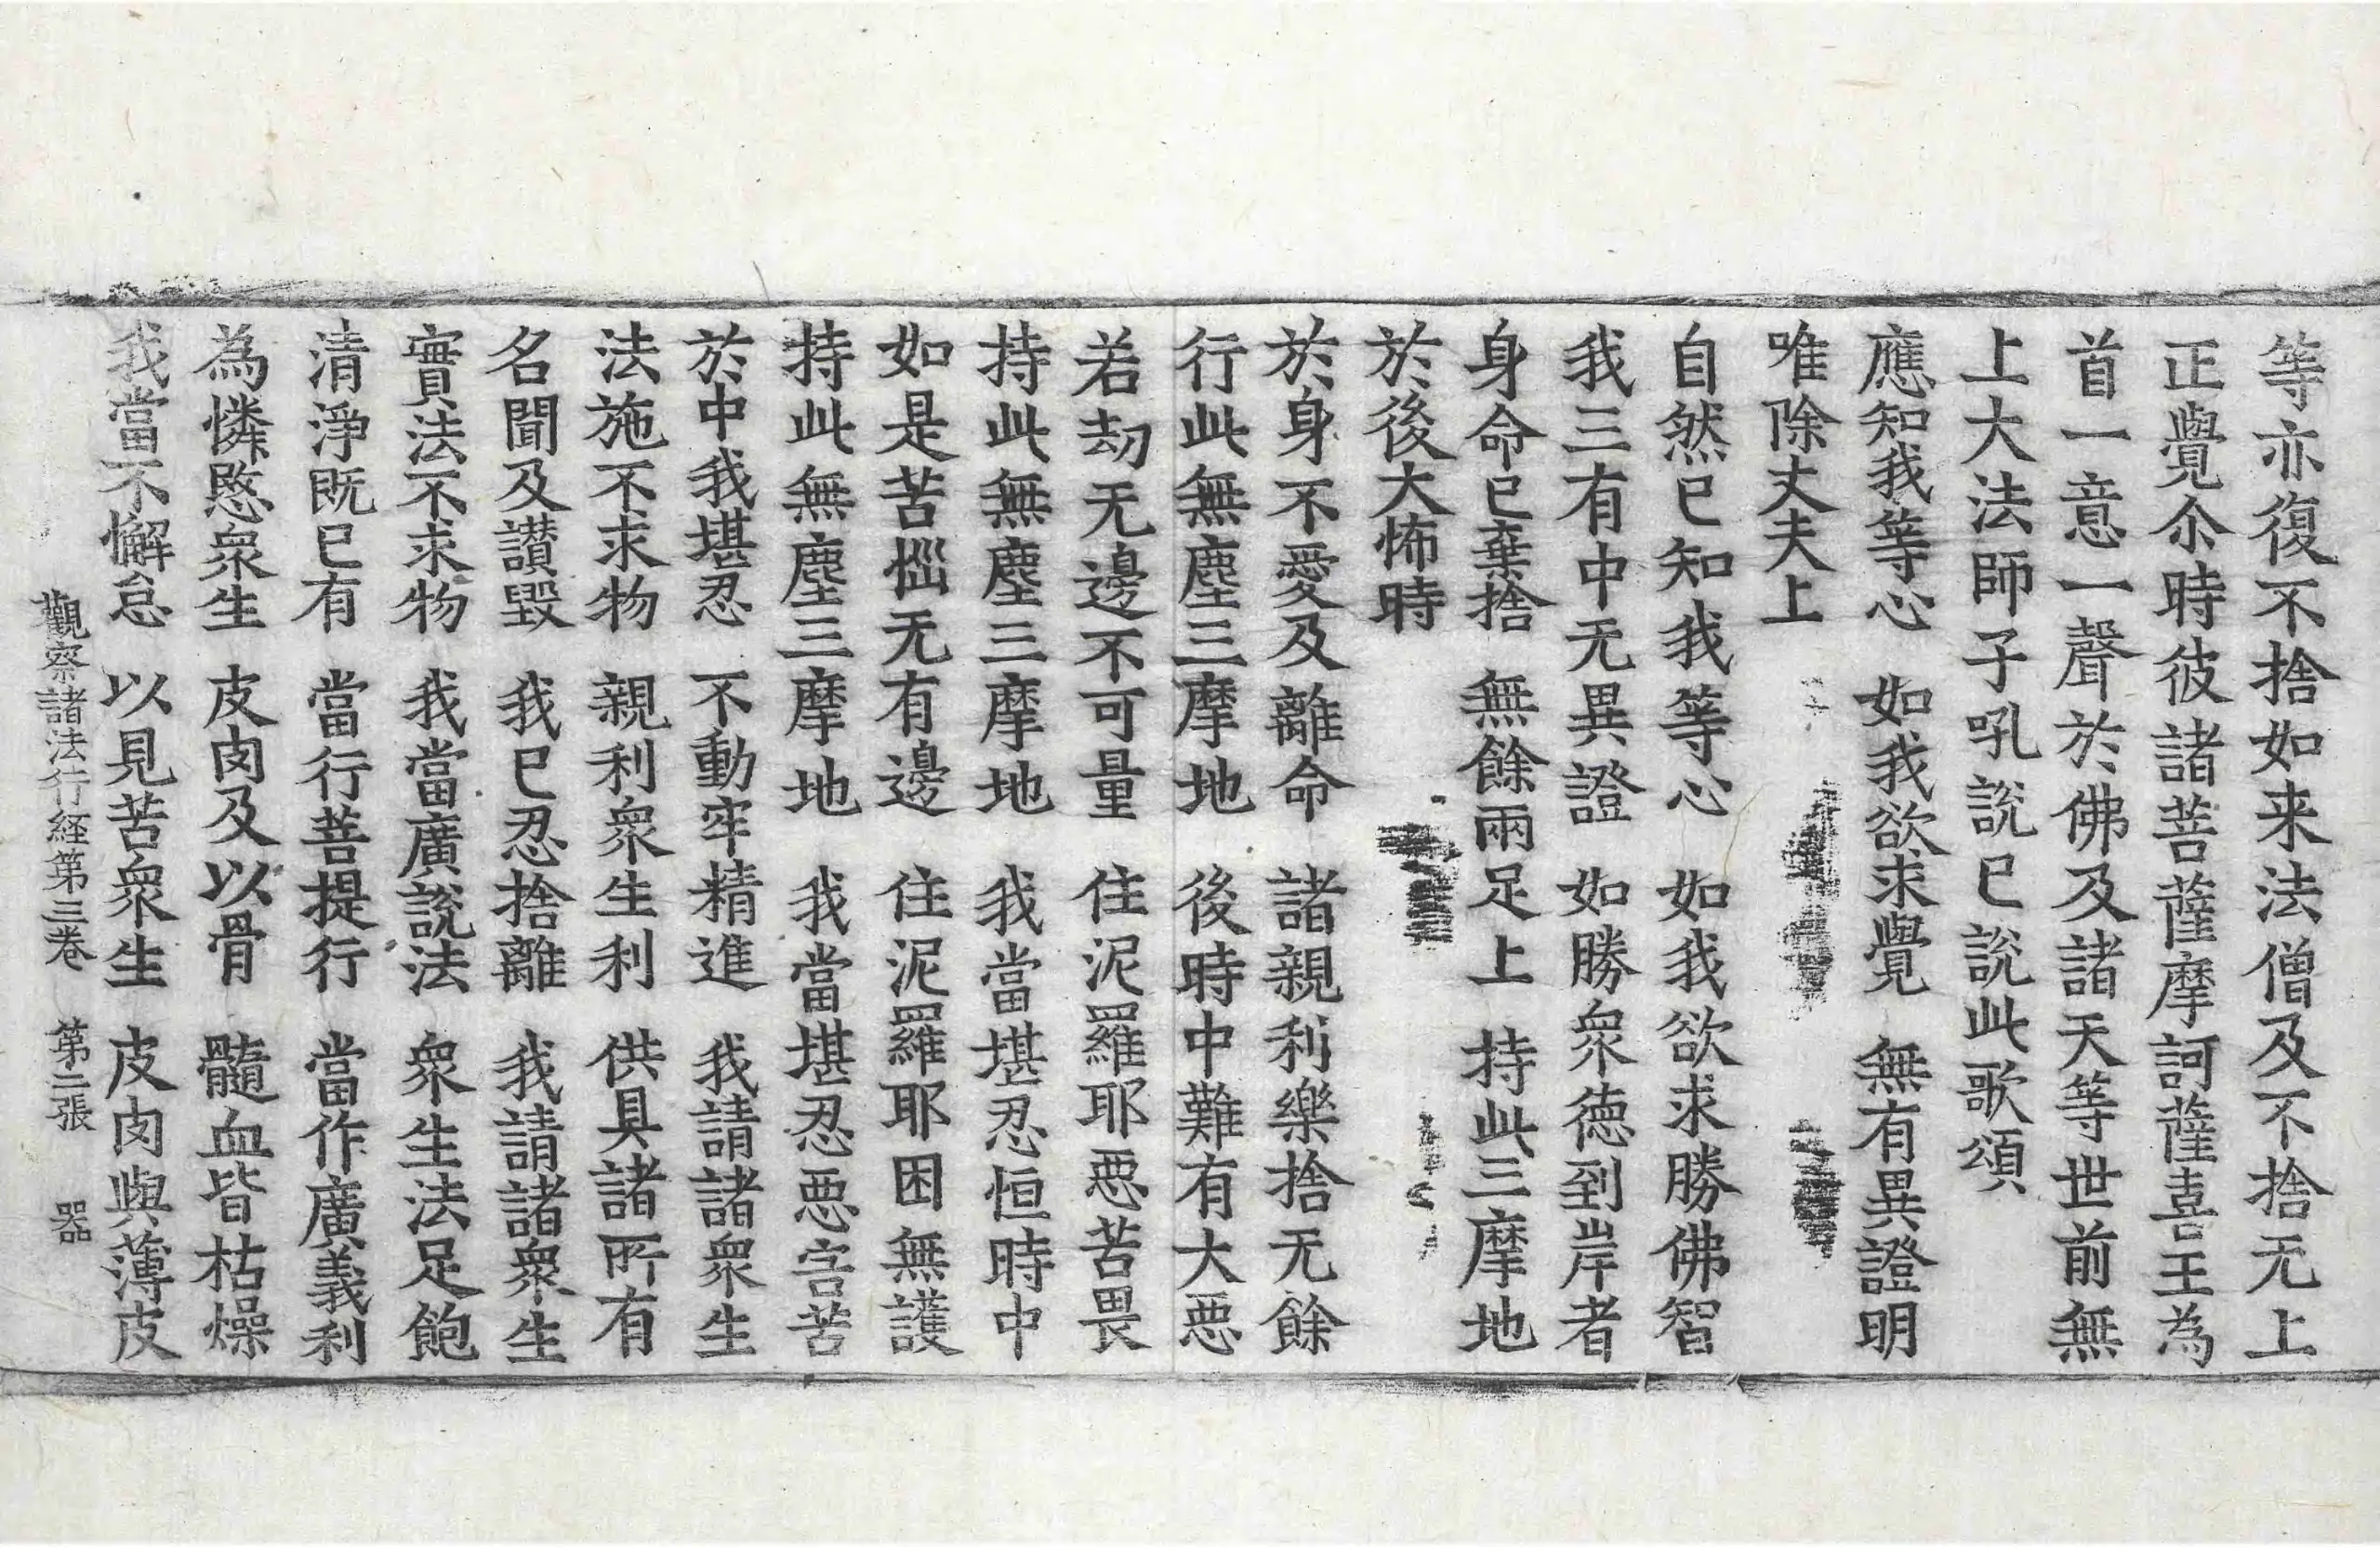 等亦復不捨如来法僧及不捨无上
正覺尒時彼諸菩薩摩訶薩喜王為
首一意一聲於佛及諸天等世前無
上大法師子吼説已説此歌頌
應知我等心　如我欲求覺　無有異證明
唯除丈夫上
自然已知我等心　如我欲求勝佛智
我三有中无異證　如勝衆德到岸者
身命已棄捨　無餘兩足上　持此三摩地
於後大怖時
於身不愛及離命　諸親利樂捨无餘
行此無塵三摩地　後時中難有大惡
若劫无邊不可量　住泥羅耶惡苦畏
持此無塵三摩地　我當堪忍恒時中
如是苦惱无有邊　住泥羅耶困無護
持此無塵三摩地　我當堪忍惡害苦
於中我堪忍　不動牢精進　我請諸衆生
法施不求物　親利衆生利　供具諸所有
名聞及讃毀　我已忍捨離　我請諸衆生
實法不求物　我當廣説法　衆生法足飽
清淨既已有　當行菩提行　當作廣義利
為憐愍衆生　皮肉及以骨　髓血皆枯燥
我當不懈怠　以見苦衆生　皮肉與薄皮
觀察諸法行経第三卷　第二張　器